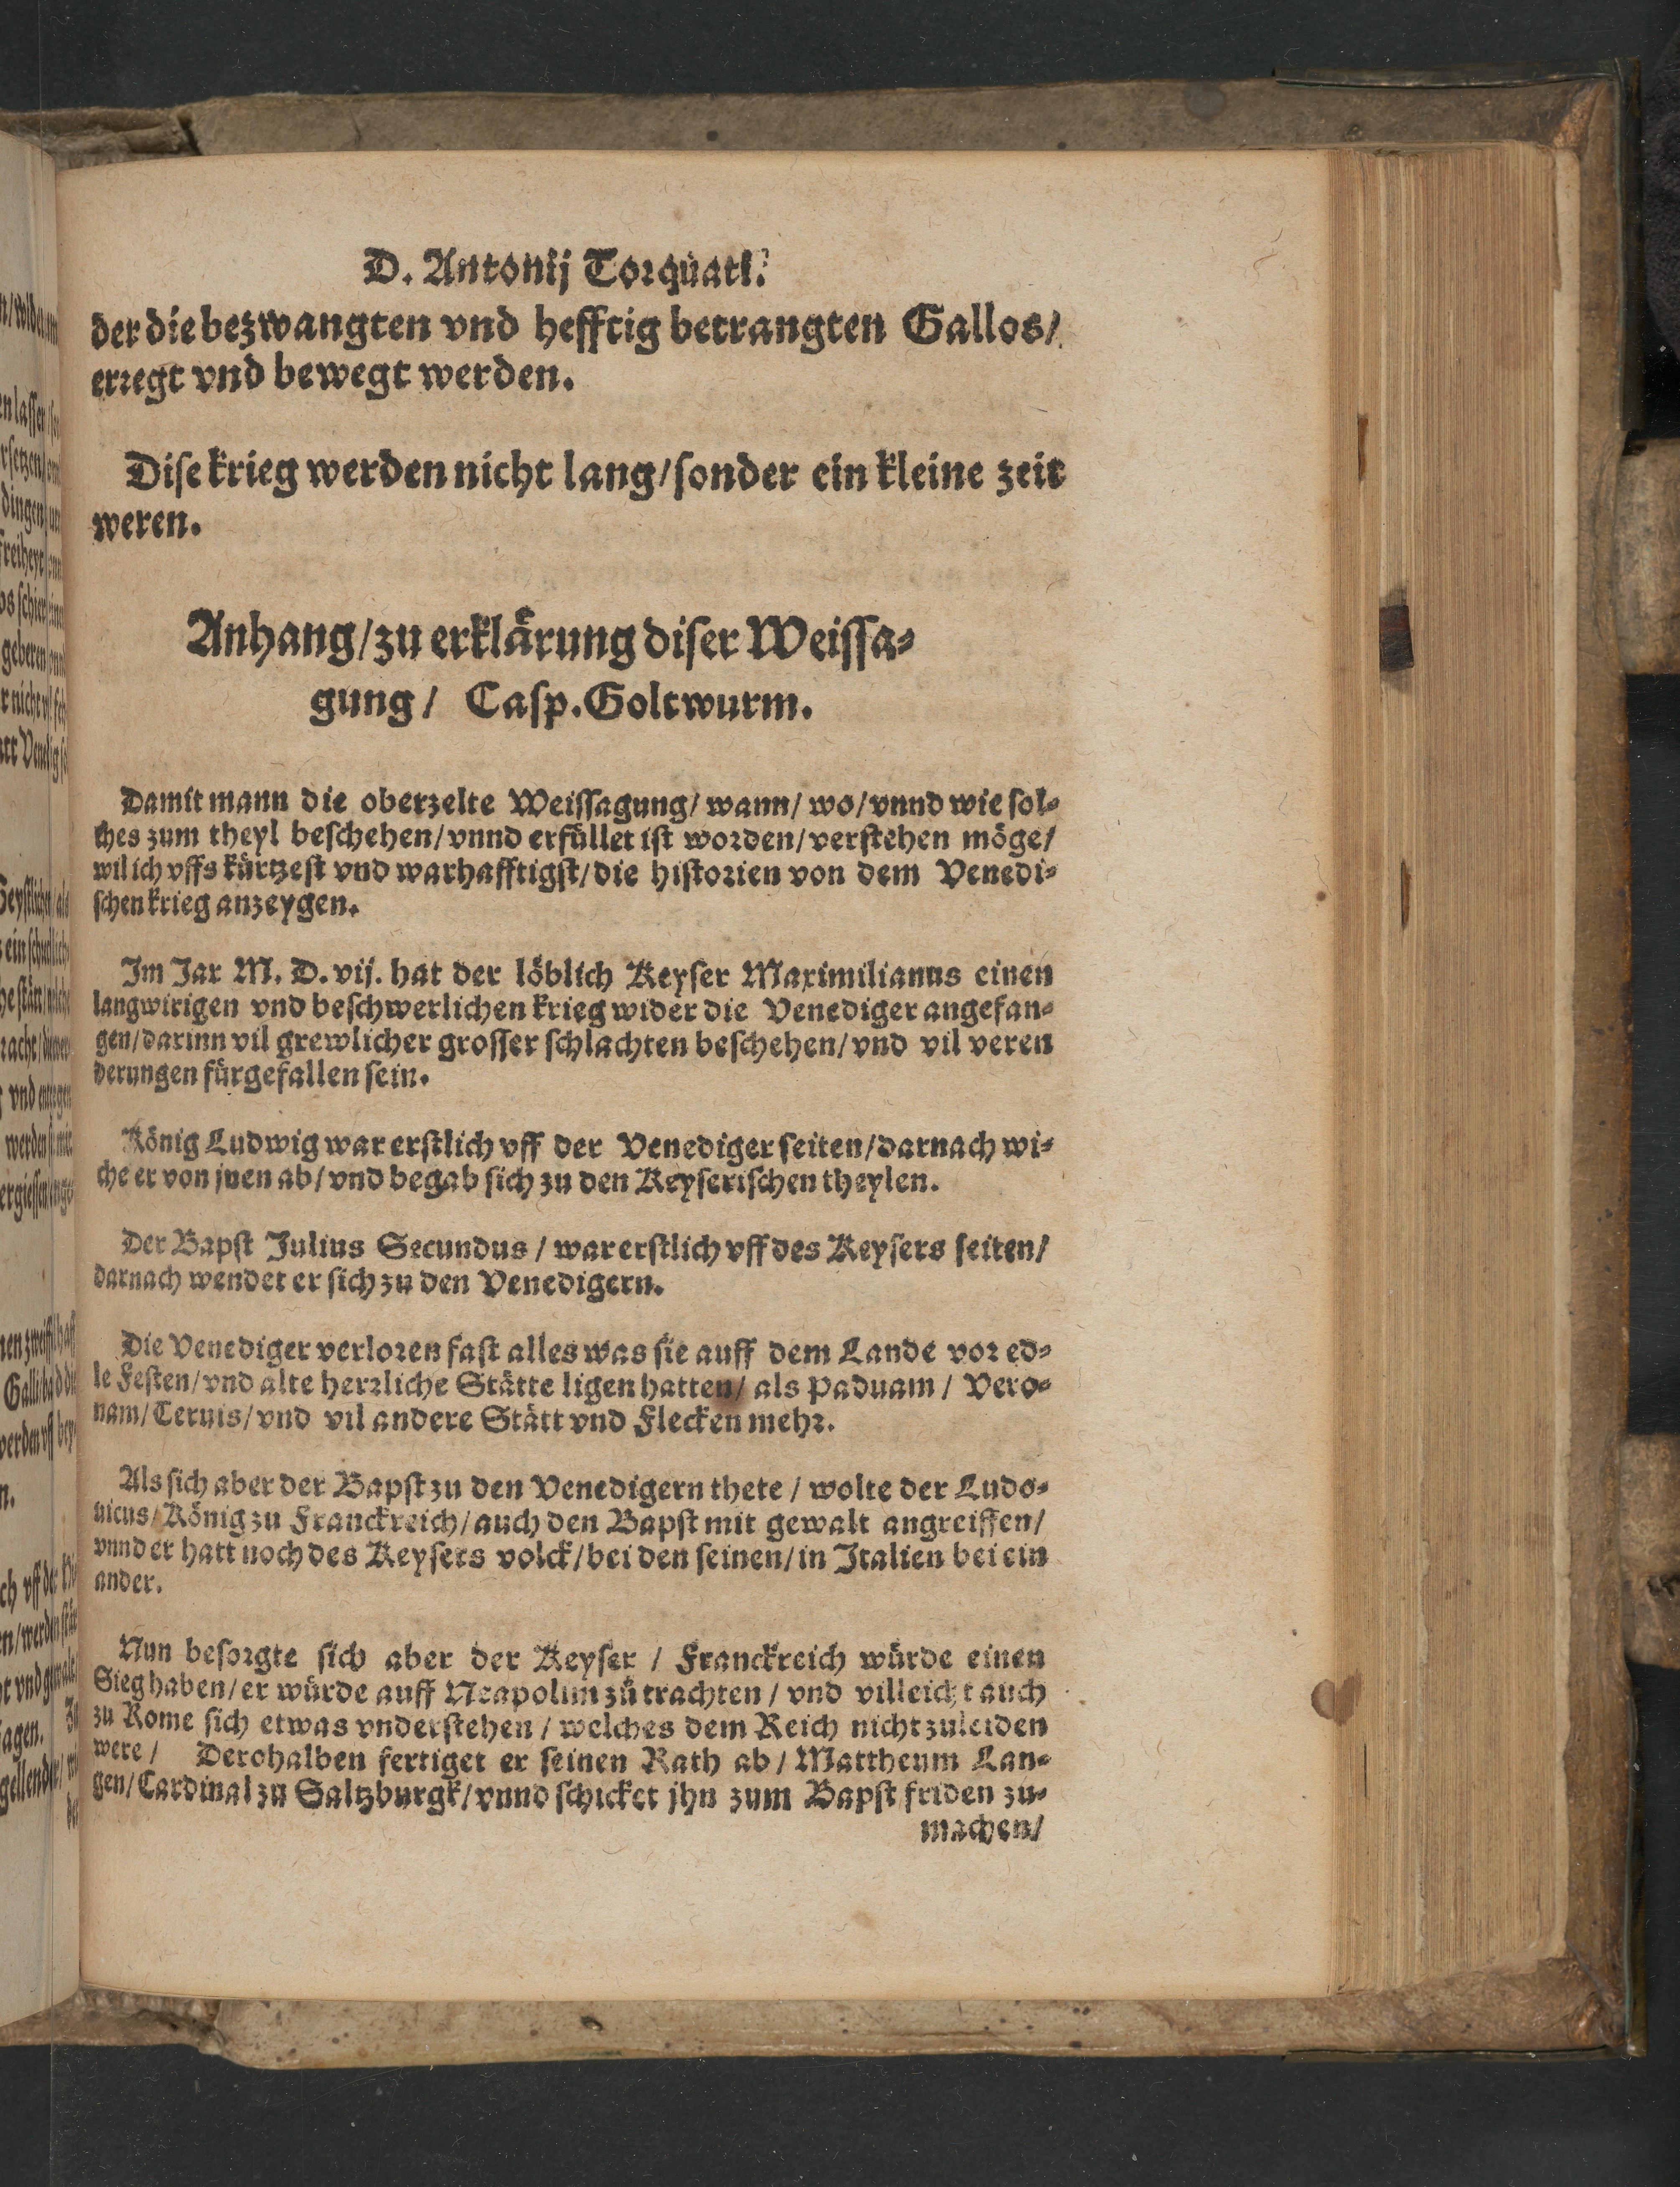 D. Antonij Torquati.
der die bezwangten vnd hefftig betrangten Gallos/
erregt vnd bewegt werden.
Dise krieg werden nicht lang/sonder ein kleine zeit
weren.
Anhang/zu erklärung diser Weissa-
gung/ Casp.Goltwurm.
Damit mann die oberzelte Weissagung/wann/wo/vnnd wie sol-
ches zum theyl beschehen/vnnd erfüllet ist worden/verstehen möge/
wil ich vffs kürtzest vnd warhafftigst/die historien von dem Venedi-
schen krieg anzeygen.
Im Jar M. D. vij. hat der löblich Keyser Maximilianus einen
langwirigen vnd beschwerlichen krieg wider die Venediger angefan-
gen/darinn vil grewlicher grosser schlachten beschehen/vnd vil veren
derungen fürgefallen sein.
König Ludwig war erstlich vff der Venediger seiten/darnach wi-
che er von jnen ab/vnd begab sich zu den Keyserischen theylen.
Der Bapst Julius Secundus/war erstlich vff des Keysers seiten/
darnach wendet er sich zu den Venedigern.
Die Venediger verloren fast alles was sie auff dem Lande vor ed-
le Festen/vnd alte herrliche Stätte ligen hatten/als Paduam/Vero-
nam/Teruis/vnd vil andere Stätt vnd Flecken mehr.
Als sich aber der Bapst zu den Venedigern thete/wolte der Ludo-
uicus/König zu Franckreich/auch den Bapst mit gewalt angreiffen/
vnnd er hatt noch des Keysers volck/bei den seinen/in Italien bei ein
ander.
Nun besorgte sich aber der Keyser/Franckreich würde einen
Sieg haben/er würde auff Neapolim zů trachten/vnd villeicht auch
zu Rome sich etwas vnderstehen/welches dem Reich nicht zuleiden
were/ Derohalben fertiget er seinen Rath ab/Mattheum Lan-
gen/Cardinal zu Saltzburgk/vnnd schicket jhn zum Bapst friden zu-
machen/